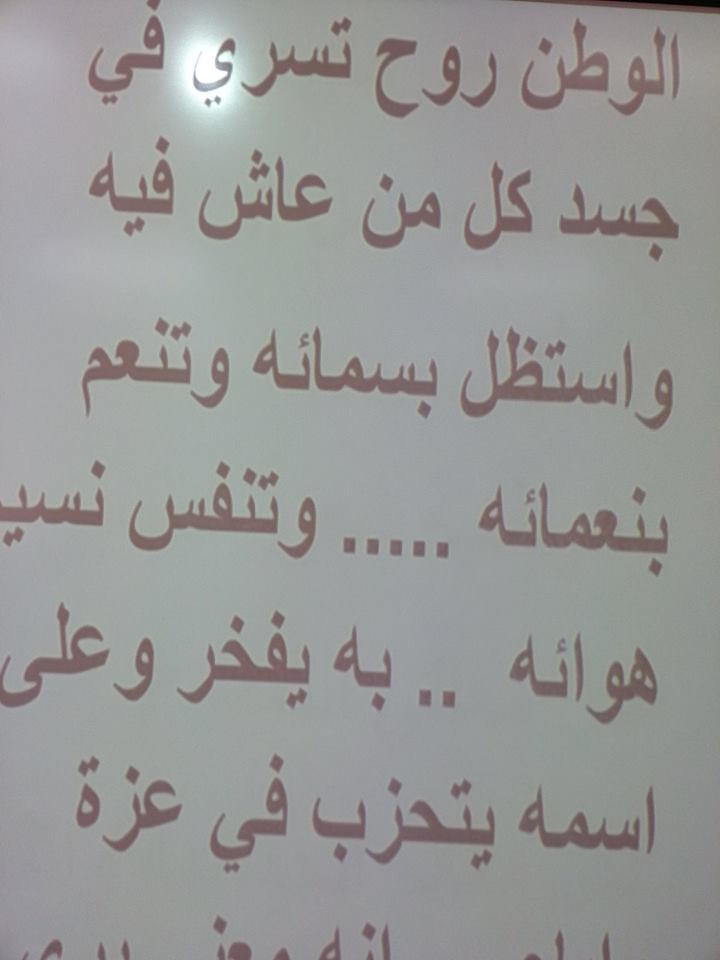 الوطن روح تسري في
جسد كل من عاش فيه
واستظل بسمائه وتنعم
بنعمائه ..... وتنفس نسيـ
هوائه .. به يفخر وعلى
اسمه يتحزب في عزة